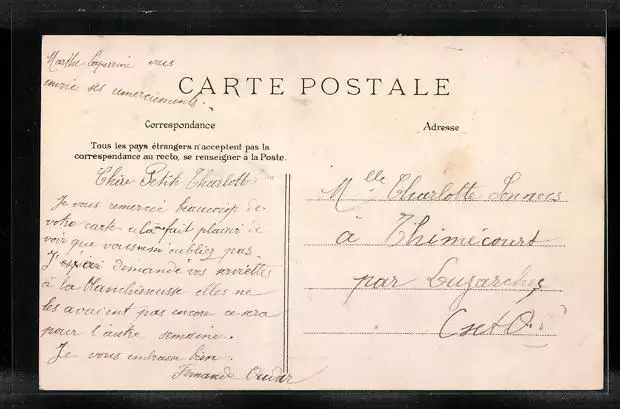 Marthe vous
envoie ses remerciements.
CARTE POSTALE
Correspondance
Tous les pays étrangers n'acceptent pas la
correspondance au recto, se renseigner à la Poste.
Chère Petite Charlotte
Je vous remercie beaucoup de
votre carte fait plaisir de
voir que vous m'oubliez pas
demandé vos serviettes
à la blanchisseuse elles ne
les avaient pas encore ce sera
pour l'autre semaine.
Je vous embrasse bien.
Fernande
Adresse
Melle Charlotte
à Thimécourt
par Luzarches
S et O.